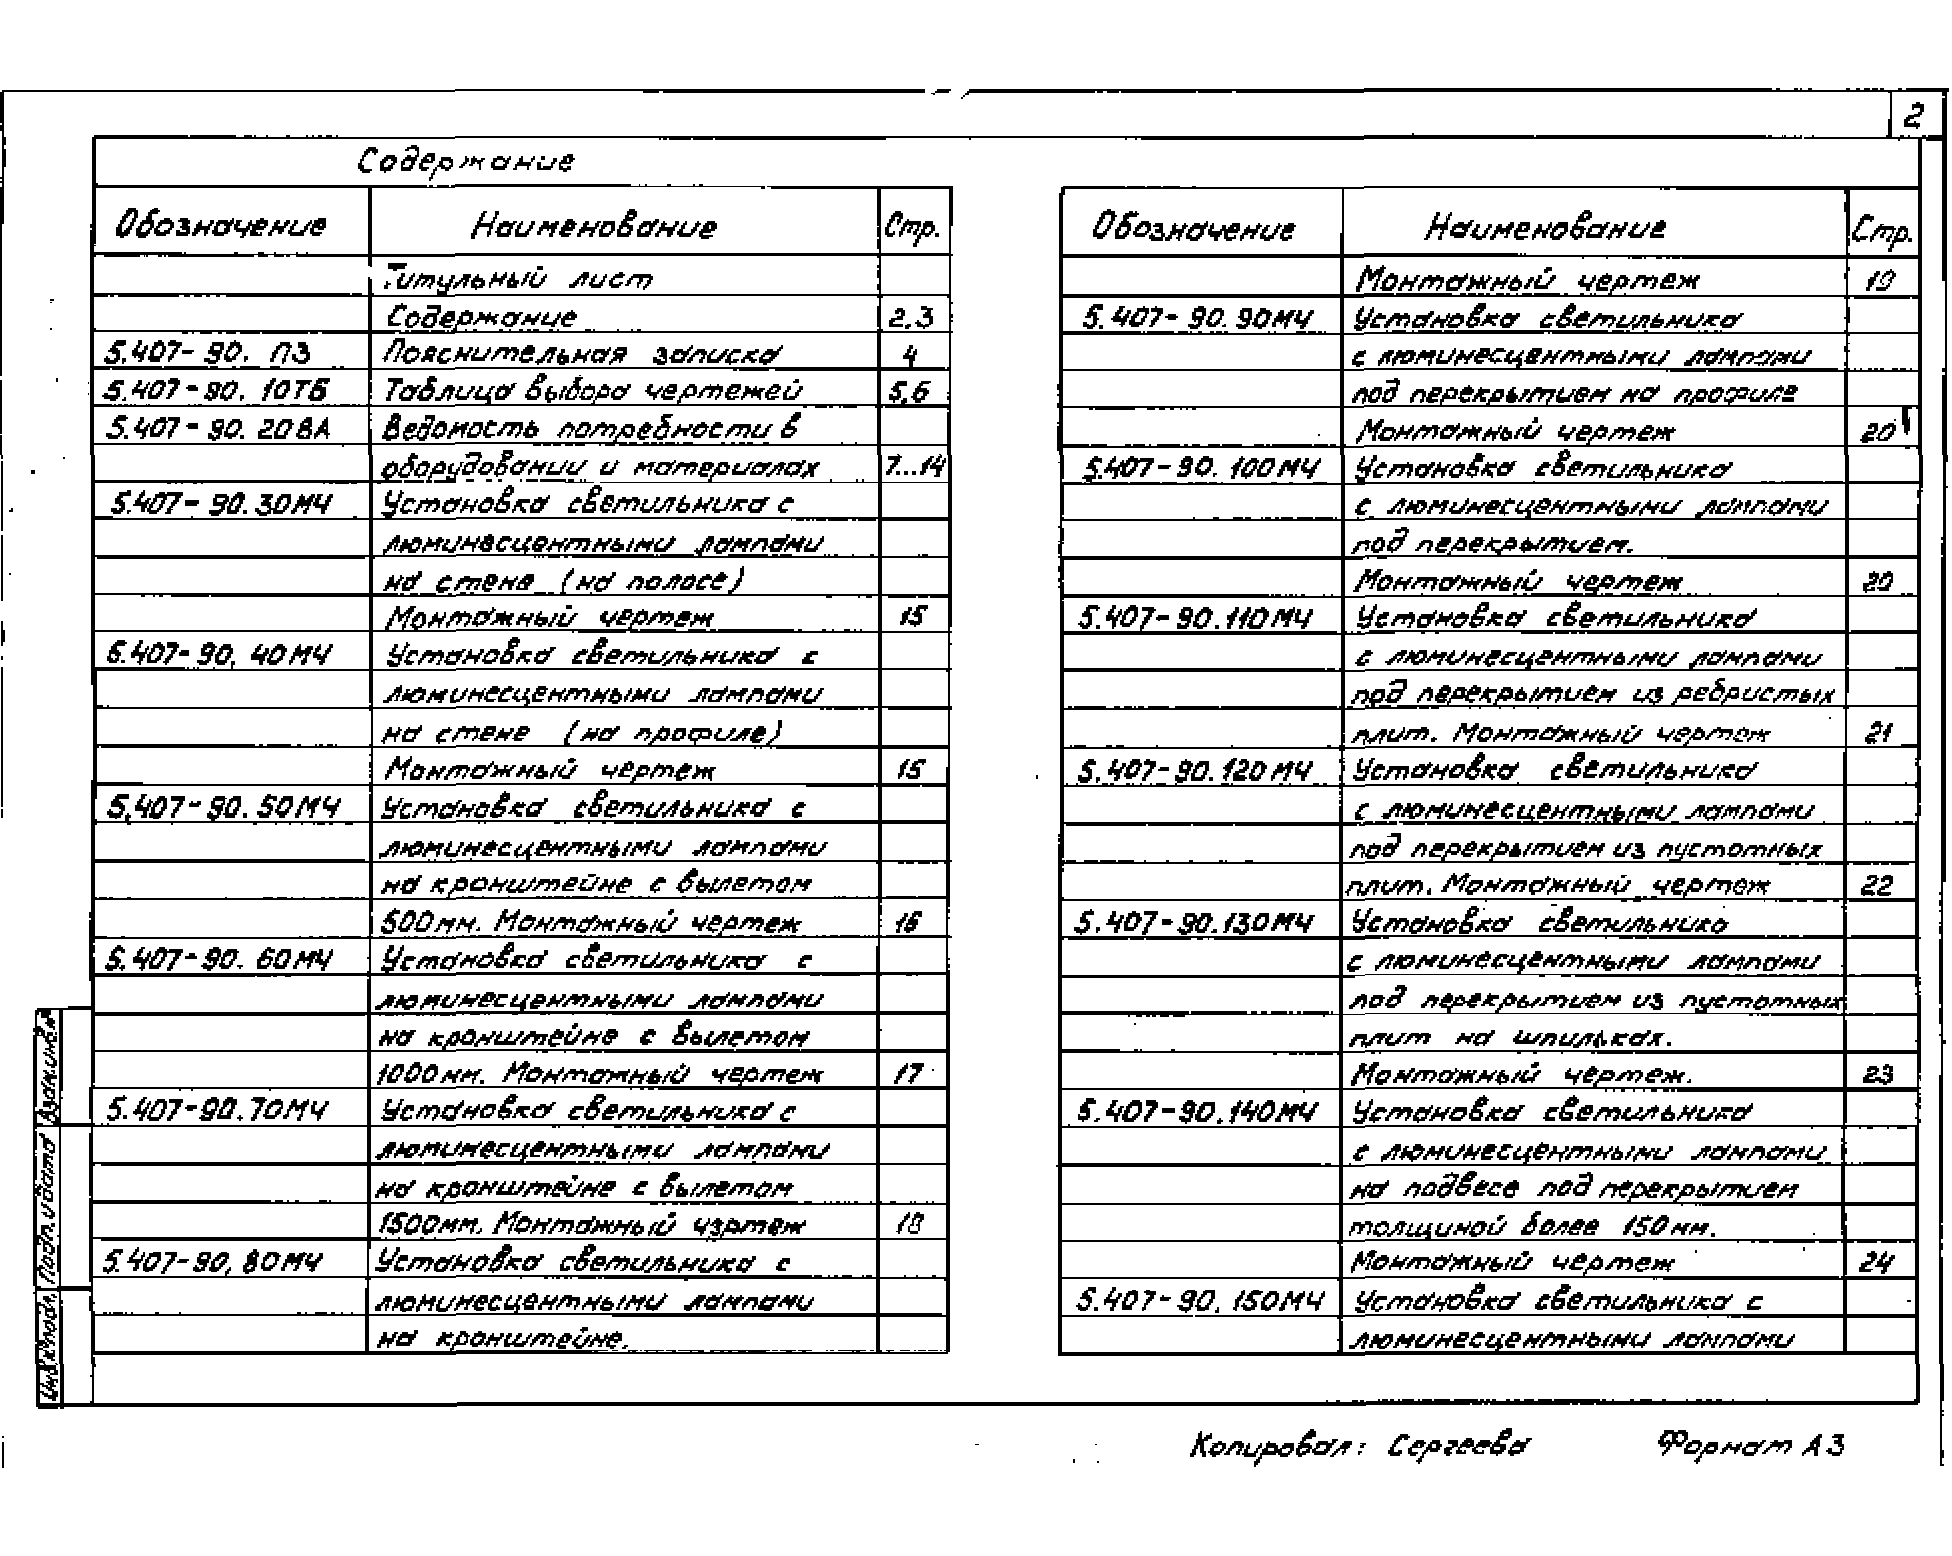 2
Содержание
Обозначение Наименование Стр.
Титульный лист
Содержание 2,3
5.407-90. ПЗ Пояснительная записка 4
5.407-90. 10ТБ Таблица выбора чертежей 5,6
5.407-90. 20ВА Ведомость потребности в
оборудовании и материалах 7...14
5.407-90. 30МЧ Установка светильника с
люминесцентными лампами
на стене (на полосе)
Монтажный чертеж 15
5.407-90. 40МЧ Установка светильника с
люминесцентными лампами
на стене (на профиле)
Монтажный чертеж 15
5.407-90. 50МЧ Установка светильника с
люминесцентными лампами
на кронштейне с вылетом
500мм. Монтажный чертеж 16
5.407-90. 60МЧ Установка светильника с
люминесцентными лампами
на кронштейне с вылетом
1000мм. Монтажный чертеж 17
5.407-90. 70МЧ Установка светильника с
люминесцентными лампами
на кронштейне с вылетом
1500мм. Монтажный чертеж 18
5.407-90. 80МЧ Установка светильника с
люминесцентными лампами
на кронштейне.
Обозначение Наименование Стр.
Монтажный чертеж 19
5.407-90. 90МЧ Установка светильника
с люминесцентными лампами
под перекрытием на профиле
Монтажный чертеж 20
5.407-90. 100МЧ Установка светильника
с люминесцентными лампами
под перекрытием.
Монтажный чертеж 20
5.407-90. 110МЧ Установка светильника
с люминесцентными лампами
под перекрытием из ребристых
плит. Монтажный чертеж 21
5.407-90. 120МЧ Установка светильника
с люминесцентными лампами
под перекрытием из пустотных
плит. Монтажный чертеж 22
5.407-90. 130МЧ Установка светильника
с люминесцентными лампами
под перекрытием из пустотных
плит на шпильках.
Монтажный чертеж. 23
5.407-90. 140МЧ Установка светильника
с люминесцентными лампами
на подвесе под перекрытием
толщиной более 150мм.
Монтажный чертеж 24
5.407-90. 150МЧ Установка светильника с
люминесцентными лампами
Взам.инв.№
Подп. и дата
Инв.№подл.
Копировал: Сергеева Формат А3